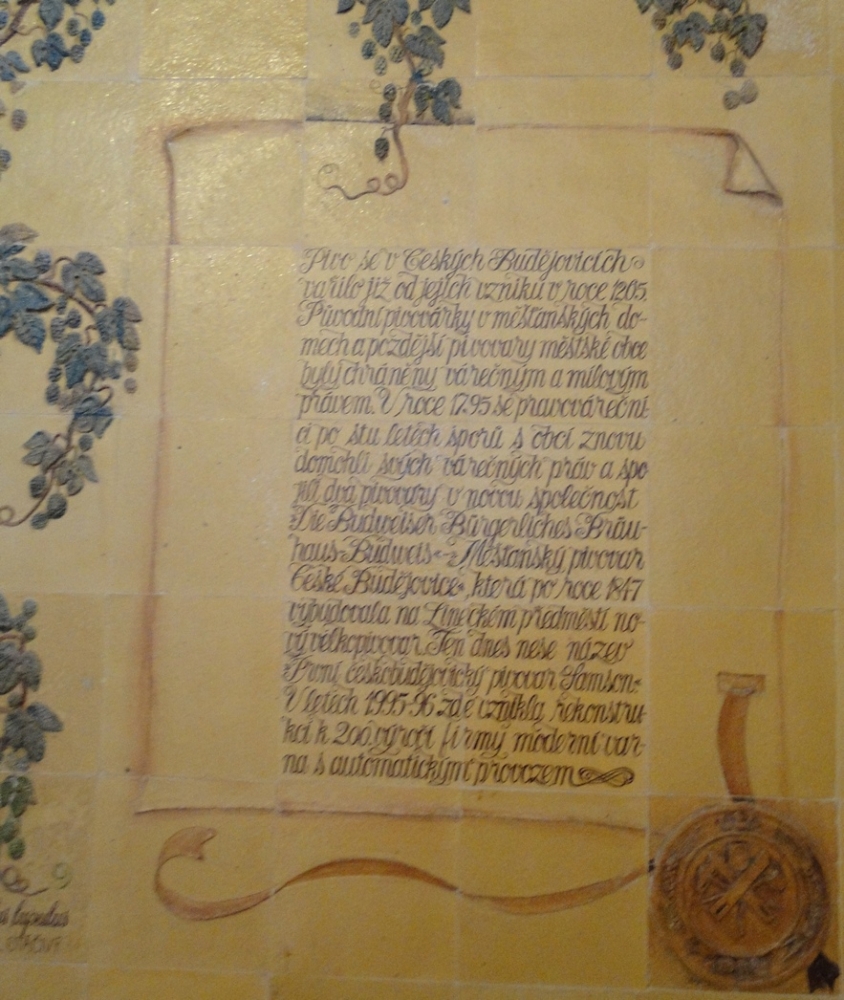 Pivo se v Českých Budějovicích
vařilo již od jejich vzniku v roce 1265.
Původní pivovárky v měšťanských do-
mech a pozdější pivovary městské obce
byly chráněny várečným a mílovým
právem. V roce 1795 se pravováreční-
ci po stu letech sporů s obcí znovu
domohli svých várečných práv a spo
jili dva pivovary v novou společnost
»Die Budweiser Bürgerliches Bräu-
haus-Budweis«-»Měšťanský pivovar
České Budějovice«, která po roce 1847
vybudovala na Lineckém předměstí no-
vý velkopivovar. Ten dnes nese název
»První českobudějovický pivovar Samson«
V letech 1995-96 zde vznikla rekonstru-
kcí k 200. výročí firmy moderní var-
na s automatickým provozem
lupulus